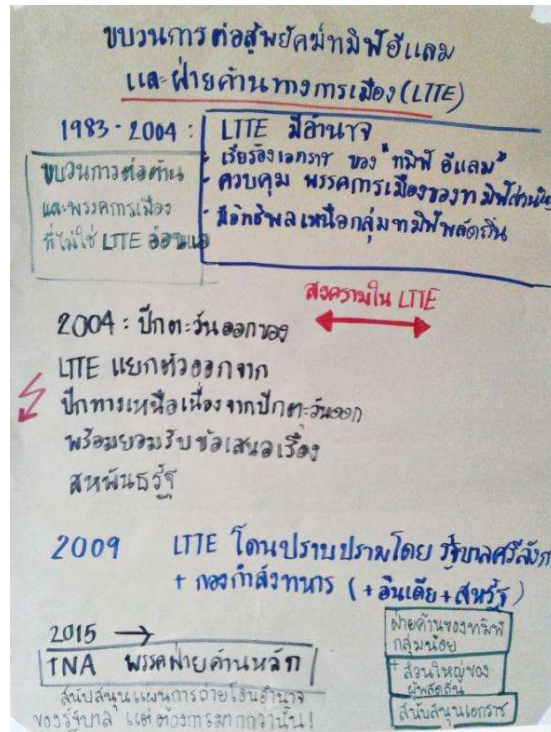 ขบวนการต่อสู้พยัคฆ์ทมิฬอีแลม
และฝ่ายค้านทางการเมือง (LTTE)
1983 - 2004 :
LTTE มีอำนาจ
- เรียร้องเอกราช ของ "ทมิฬ อีแลม"
- ควบคุม พรรคการเมืองของทมิฬส่วนใ
- มีอิทธิพลเหนือกลุ่มทมิฬพลัดถิ่น
ขบวนการต่อต้าน
และพรรคการเมือง
ที่ไม่ใช่ LTTE อ่อนแอ
สงครามใน LTTE
2004 : ปีกตะวันออกของ
LTTE แยกตัวออกจาก
ปีกทางเหนือเนื่องจากปีกตะวันออก
พร้อมยอมรับข้อเสนอเรื่อง
สหพันธรัฐ
2009 LTTE โดนปราบปรามโดย รัฐบาลศรีลังก
+ กองกำลังทหาร (+ อินเดีย + สหรัฐ)
2015 →
TNA พรรคฝ่ายค้านหลัก
สนับสนุนแผนการถ่ายโอนอำนาจ
ของรัฐบาล แต่ต้องการมากกว่านั้น!
ฝ่ายค้านของทมิฬ
กลุ่มน้อย
+ ส่วนใหญ่ของ
ผู้พลัดถิ่น
สนับสนุนเอกราช